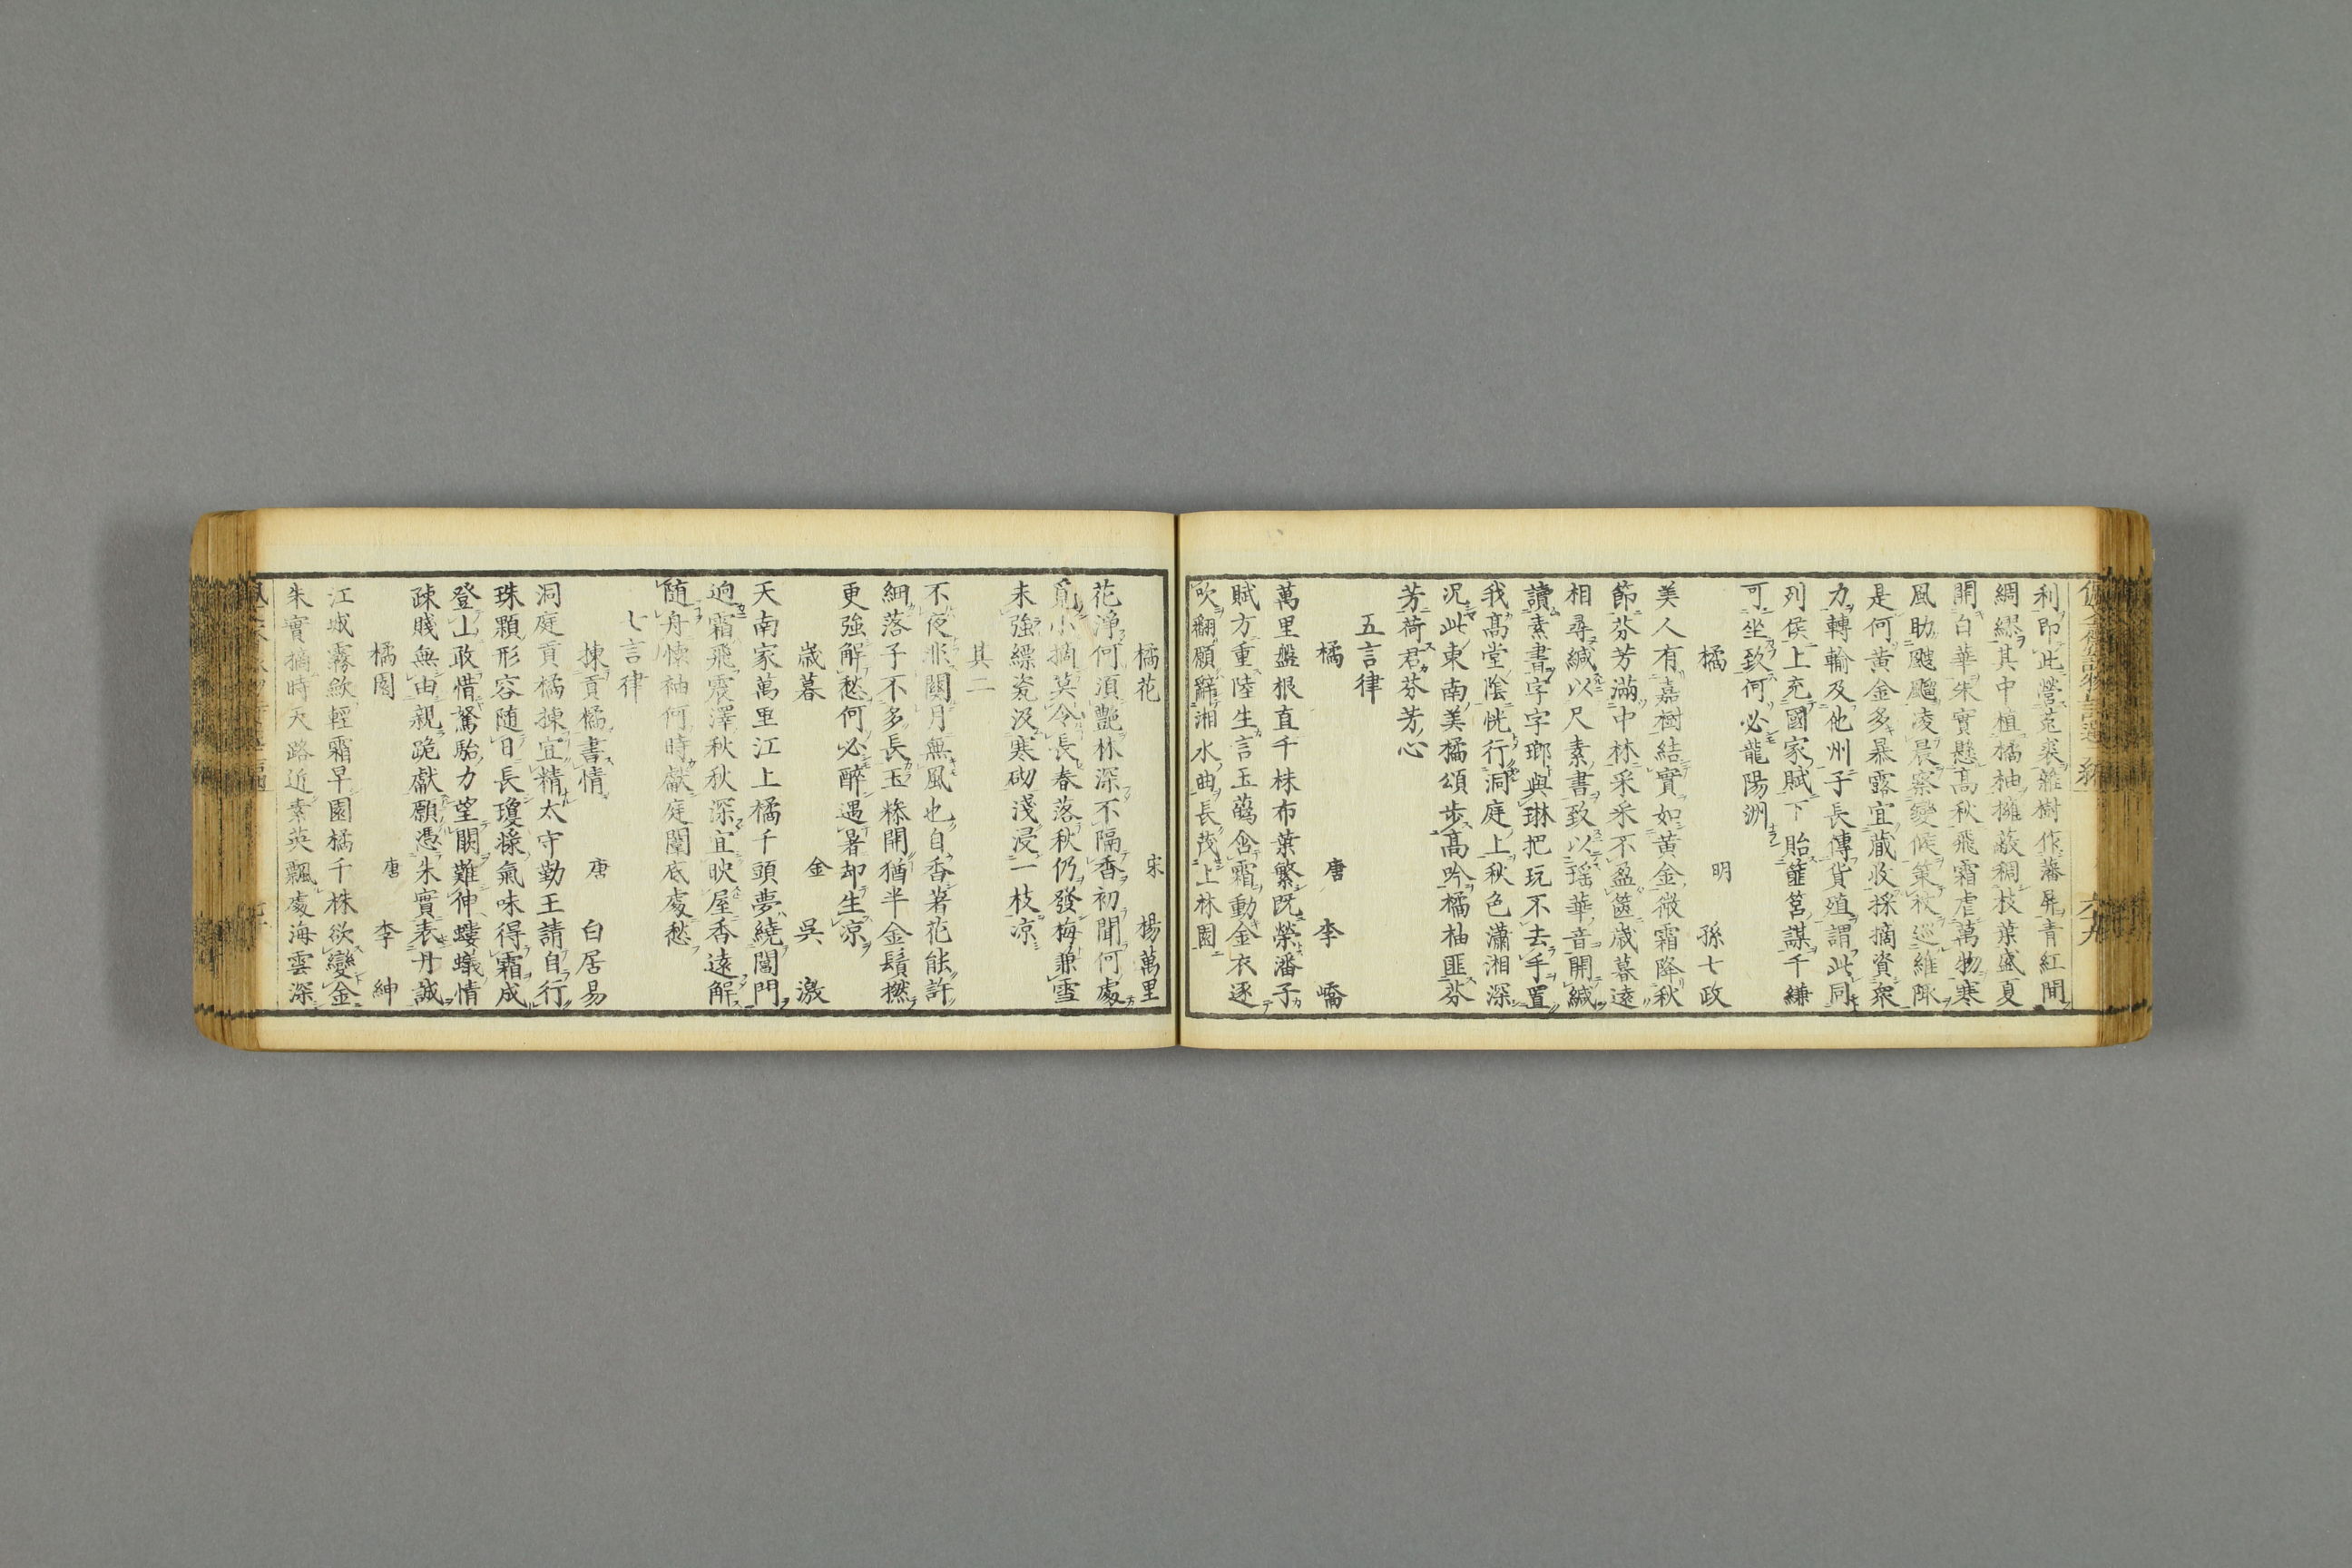 利即此營菟裘雜樹作藩屏青紅間
綢繆其中植橘柚擁蔽稠枝葉盛夏
開白華朱實懸高秋飛霜虐萬物寒
風助颼飀凌晨察變候策杖巡維陬
是何黄金多暴露宜蔵收採摘資衆
力轉輸及他州子長傳貨殖謂此同
列侯上充國家賦下貽篚筥謀千縑
可坐致何必龍陽洲
橘 明 孫七政
美人有嘉樹結實如黄金微霜降秋
節芬芳滿中林采采不盈筐歳暮遠
相尋緘以尺素書致以瑶華音開緘
讀素書字字瑯與琳把玩不去手置
我高堂陰恍行洞庭上秋色瀟湘深
况此東南美橘頌歩高吟橘柚匪芬
芳荷君芬芳心
五言律
橘 唐 李嶠
萬里盤根直千株布葉繁既榮潘子
賦方重陸生言玉蘤含霜動金衣逐
吹翻願辭湘水曲長茂上林園
橘花 宋 楊萬里
花淨何須艷林深不隔香初聞何處
覓小摘莫令長春落秋仍發梅兼雪
未強縹瓷汲寒砌淺浸一枝凉
其二
不夜非關月無風也自香著花能許
細落子不多長玉糝開猶半金鬚撚
更強解愁何必醉遇暑却生凉
歳暮 金 吳激
天南家萬里江上橘千頭夢繞閶門
逈霜飛震澤秋秋深宜映屋香遠解
随舟懐袖何時獻庭闈底處愁
七言律
揀貢橘書情 唐 白居易
洞庭貢橘揀宜精太守勤王請自行
珠顆形容随日長瓊漿氣味得霜成
登山敢惜駑駘力望闕難伸螻蟻情
疎賤無由親跪獻願憑朱實表丹誠
橘園 唐 李紳
江城霧歛輕霜早園橘千株欲變金
朱實摘時天路近素英飄處海雲深